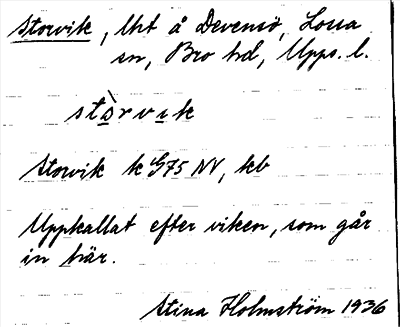 Storvik, lht å Devensö, Lossa
sn, Bro hd, Upps. l.
stòrvik
Storvik k G75 NV, kb
Uppkallat efter viken, som går
in här.
Stina Holmström 1936